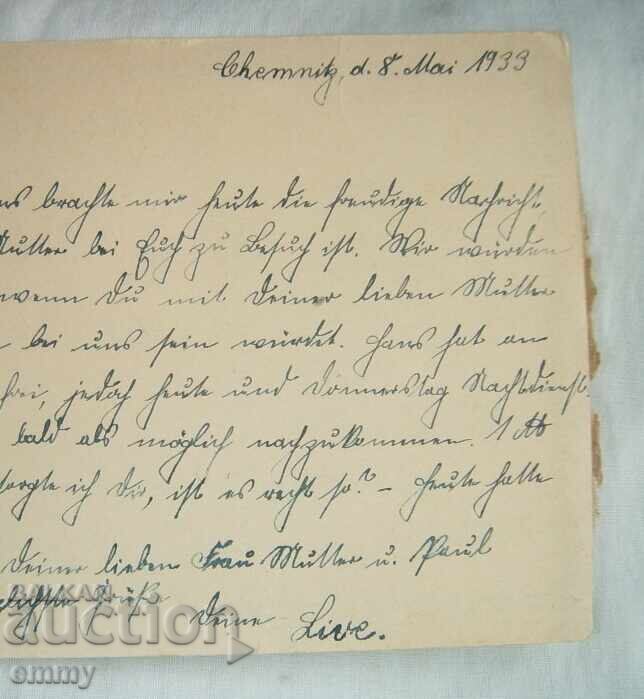 Chemnitz, d. 8. Mai 1933
ns brachte mir heute die freudige Nachricht,
Mutter bei Euch zu Besuch ist. Wir würden
wenn Du mit Deiner lieben Mutter
bei uns sein würdet. Hans hat an
frei, jedoch heute und Donnerstag Nachtdienst.
bald als möglich nachzukommen. 1
sorgte ich Dir, ist es recht so? – Heute hatte
Deiner lieben Frau Mutter u. Paul
Grüße
Deine
БАЛКАН
auction
ommy